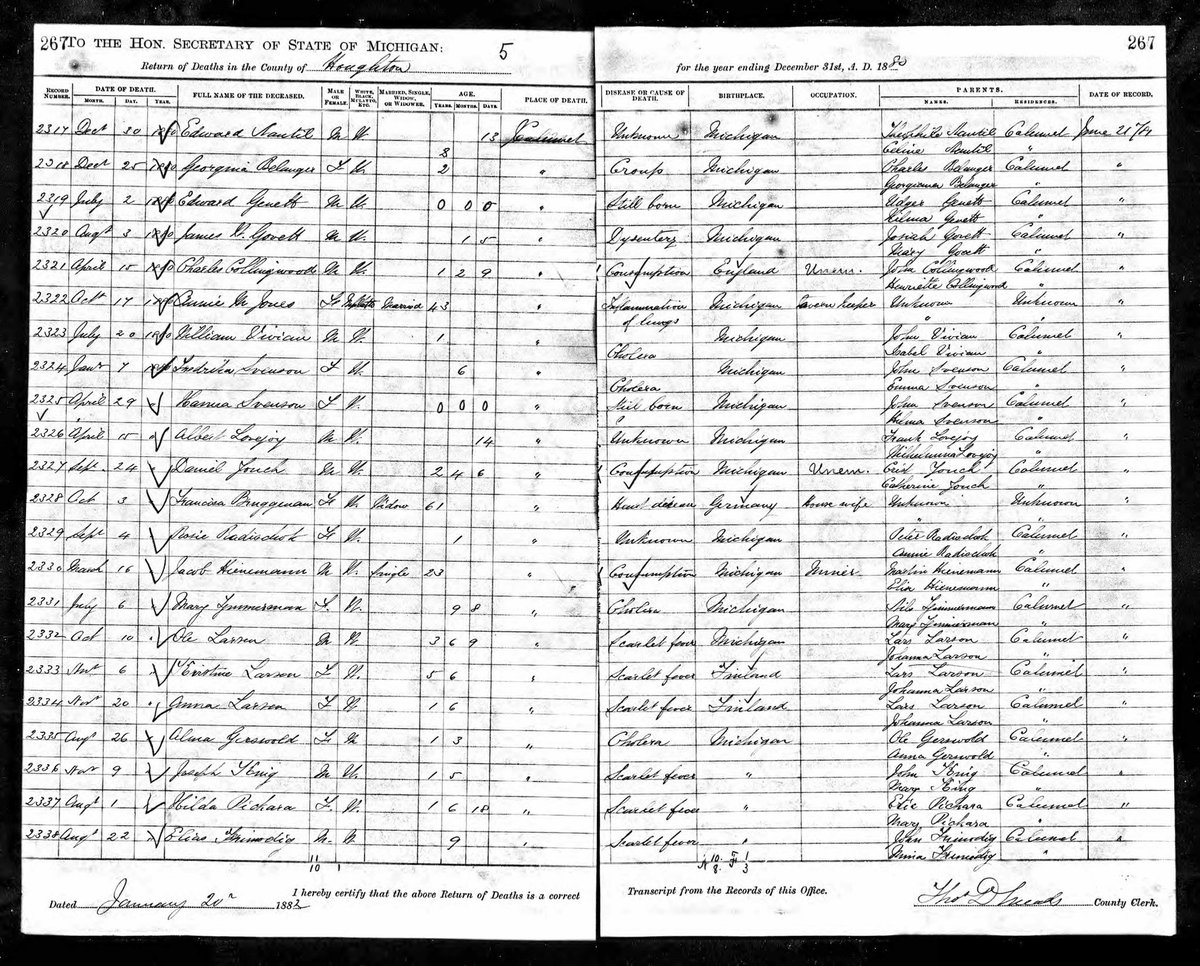 267 TO THE HON. SECRETARY OF STATE OF MICHIGAN: 5 267
Return of Deaths in the County of Houghton for the year ending December 31st, A. D. 1880
RECORD NUMBER. DATE OF DEATH. MONTH. DAY. YEAR. FULL NAME OF THE DECEASED. MALE OR FEMALE. WHITE, BLACK, MULATTO, ETC. MARRIED, SINGLE, WIDOW, OR WIDOWER. AGE. YEARS. MONTHS. DAYS. PLACE OF DEATH. DISEASE OR CAUSE OF DEATH. BIRTHPLACE. OCCUPATION. PARENTS. NAMES. RESIDENCES. DATE OF RECORD.
2317 Dect 30 1880 Edward M. W. 13 Calumet Unknown Michigan Calumet June 21
3 "
2318 Dect 25 1880 Georginia Belanger F. W. 2 " Croup Michigan Charles Belanger Calumet "
Belanger "
2319 July 2 1880 Edward Genett M. W. 0 0 0 " Still born Michigan Genett Calumet "
Genett "
2320 Augt 3 1880 James Govett M. W. 1 5 " Dysentery Michigan Josiah Govett Calumet "
Mary Govett "
2321 April 15 1880 Charles Collingwood M. W. 1 2 9 " Consumption England John Collingwood Calumet "
Henriette Collingwood "
2322 Oct 17 1880 Annie M Jones F. Mulatto Married 43 " Inflammation Michigan Tavern Keeper Unknown Unknown "
of lungs " "
2323 July 20 1880 William Vivian M. W. 1 " Michigan John Vivian Calumet "
Cholera Isabel Vivian "
2324 Jany 7 1880 Svenson F. W. 6 " Michigan John Svenson Calumet "
Cholera Emma Svenson "
2325 April 29 " Hanna Svenson F. W. 0 0 0 " Still born Michigan John Svenson Calumet "
Svenson "
2326 April 15 " Albert Lovejoy M. W. 14 " Unknown Michigan Frank Lovejoy Calumet "
Lovejoy "
2327 Sept. 24 " Daniel M. W. 2 4 6 " Consumption Michigan Calumet "
Catherine "
2328 Oct 3 " Bruggeman F. W. Widow 61 " Heart disease Germany House wife Unknown Unknown "
"
2329 Sept 4 " Rosie F. W. 1 " Unknown Michigan Peter Calumet "
Annie "
2330 March 16 " Jacob Heinemann M. W. Single 23 " Consumption Michigan Miner Martin Heinemann Calumet "
"
2331 July 6 " Mary F. W. 9 8 " Michigan Calumet "
Mary "
2332 Oct 10 " Ole Larson M. W. 3 6 9 " Scarlet fever Michigan Lars Larson Calumet "
Johanna Larson "
2333 Novt 6 " Larson F. W. 5 6 " Scarlet fever Finland Lars Larson Calumet "
Johanna Larson "
2334 Novt 20 " Anna Larson F. W. 1 6 " Scarlet fever Finland Lars Larson Calumet "
Johanna Larson "
2335 Augt 26 " Alma Gerswold F. W. 1 3 " Cholera Michigan Ole Gerswold Calumet "
Anna Gerswold "
2336 Nov 9 " Joseph King M. W. 1 5 " Scarlet fever " John King Calumet "
Mary King "
2337 Augt 1 " Hilda Pichara F. W. 1 6 18 " Scarlet fever " Pichara Calumet "
Mary Pichara "
2338 Augt 22 " Elias M. W. 9 " Scarlet fever " John Calumet "
"
I hereby certify that the above Return of Deaths is a correct Transcript from the Records of this Office.
Dated January 20 1882 County Clerk.